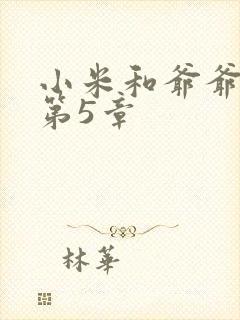 小米和爷爷
第5章
林華